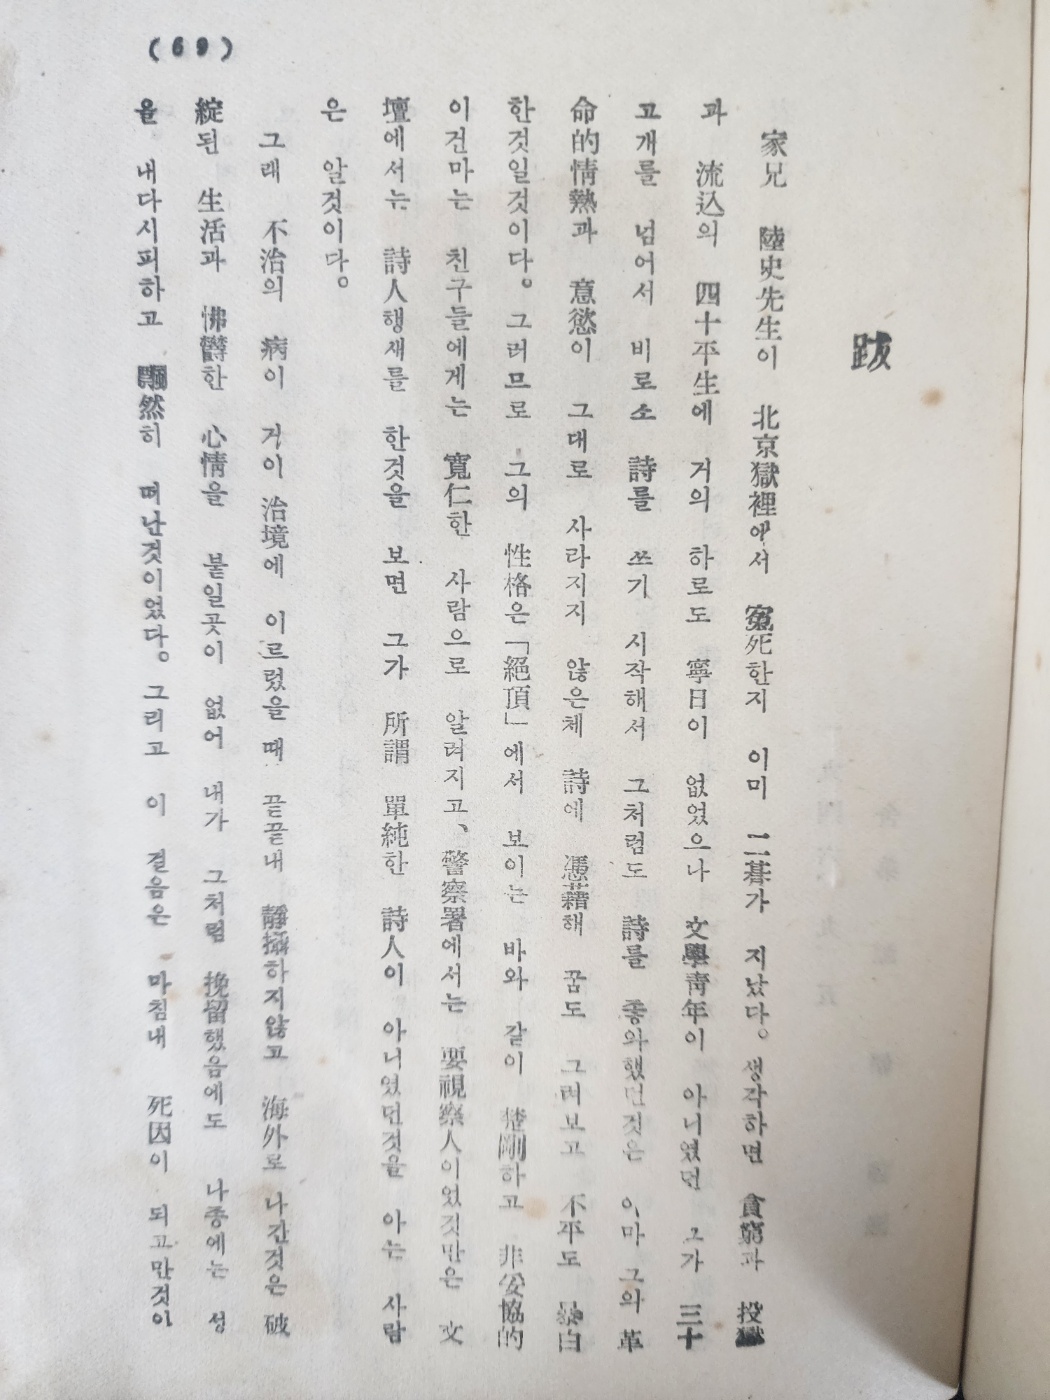 (69)
跋
家兄 陸史先生이 北京獄裡에서 寃死한지 이미 二朞가 지났다。생각하면 貪窮과 投獄
과 流込의 四十平生에 거의 하로도 寧日이 없었으나 文學靑年이 아니였던 그가 三十
고개를 넘어서 비로소 詩를 쓰기 시작해서 그처럼도 詩를 좋와했던것은 이마 그의 革
命的情熱과 意慾이 그대로 사라지지 않은체 詩에 憑藉해 꿈도 그려보고 不平도 暴白
한것일것이다。그러므로 그의 性格은「絕頂」에서 보이는 바와 같이 楚剛하고 非妥協的
이건마는 친구들에게는 寬仁한 사람으로 알려지고、警察署에서는 要視察人이었것만은 文
壇에서는 詩人행세를 한것을 보면 그가 所謂 單純한 詩人이 아니였던것을 아는 사람
은 알것이다。
그래 不治의 病이 거이 治境에 이르렀을 때 끝끝내 靜攝하지않고 海外로 나간것은 破
綻된 生活과 怫鬱한 心情을 붙일곳이 없어 내가 그처럼 挽留했음에도 나종에는 성
을 내다시피하고 飄然히 떠난것이었다。그리고 이 걸음은 마침내 死因이 되고만것이